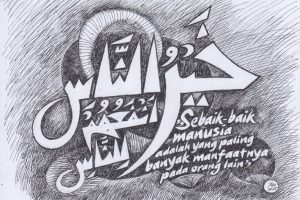 خير الناس
أنفعهم
للناس
"Sebaik-baik
manusia
adalah yang paling
banyak manfaatnya
pada orang lain"